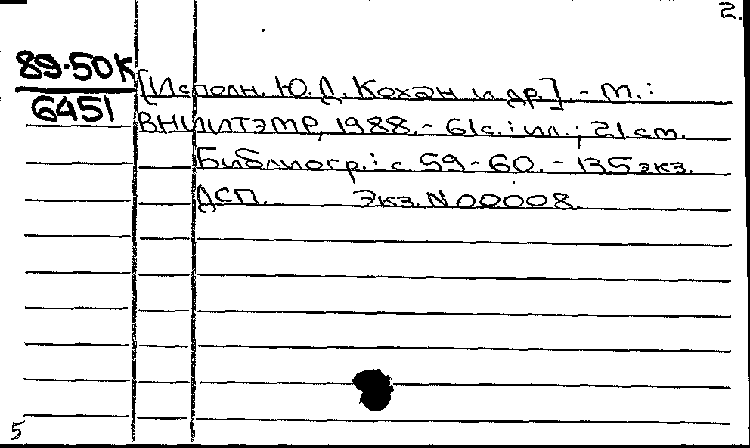 2.
89-50К
6451
[Исполн. Ю.Д. Кохан и др.]. - М.:
ВНИИТЭМР, 1988. - 61 с.: ил.; 21 см.
Библиогр.: с. 59-60. - 135 экз.
ДСП. Экз. N 00008.
5